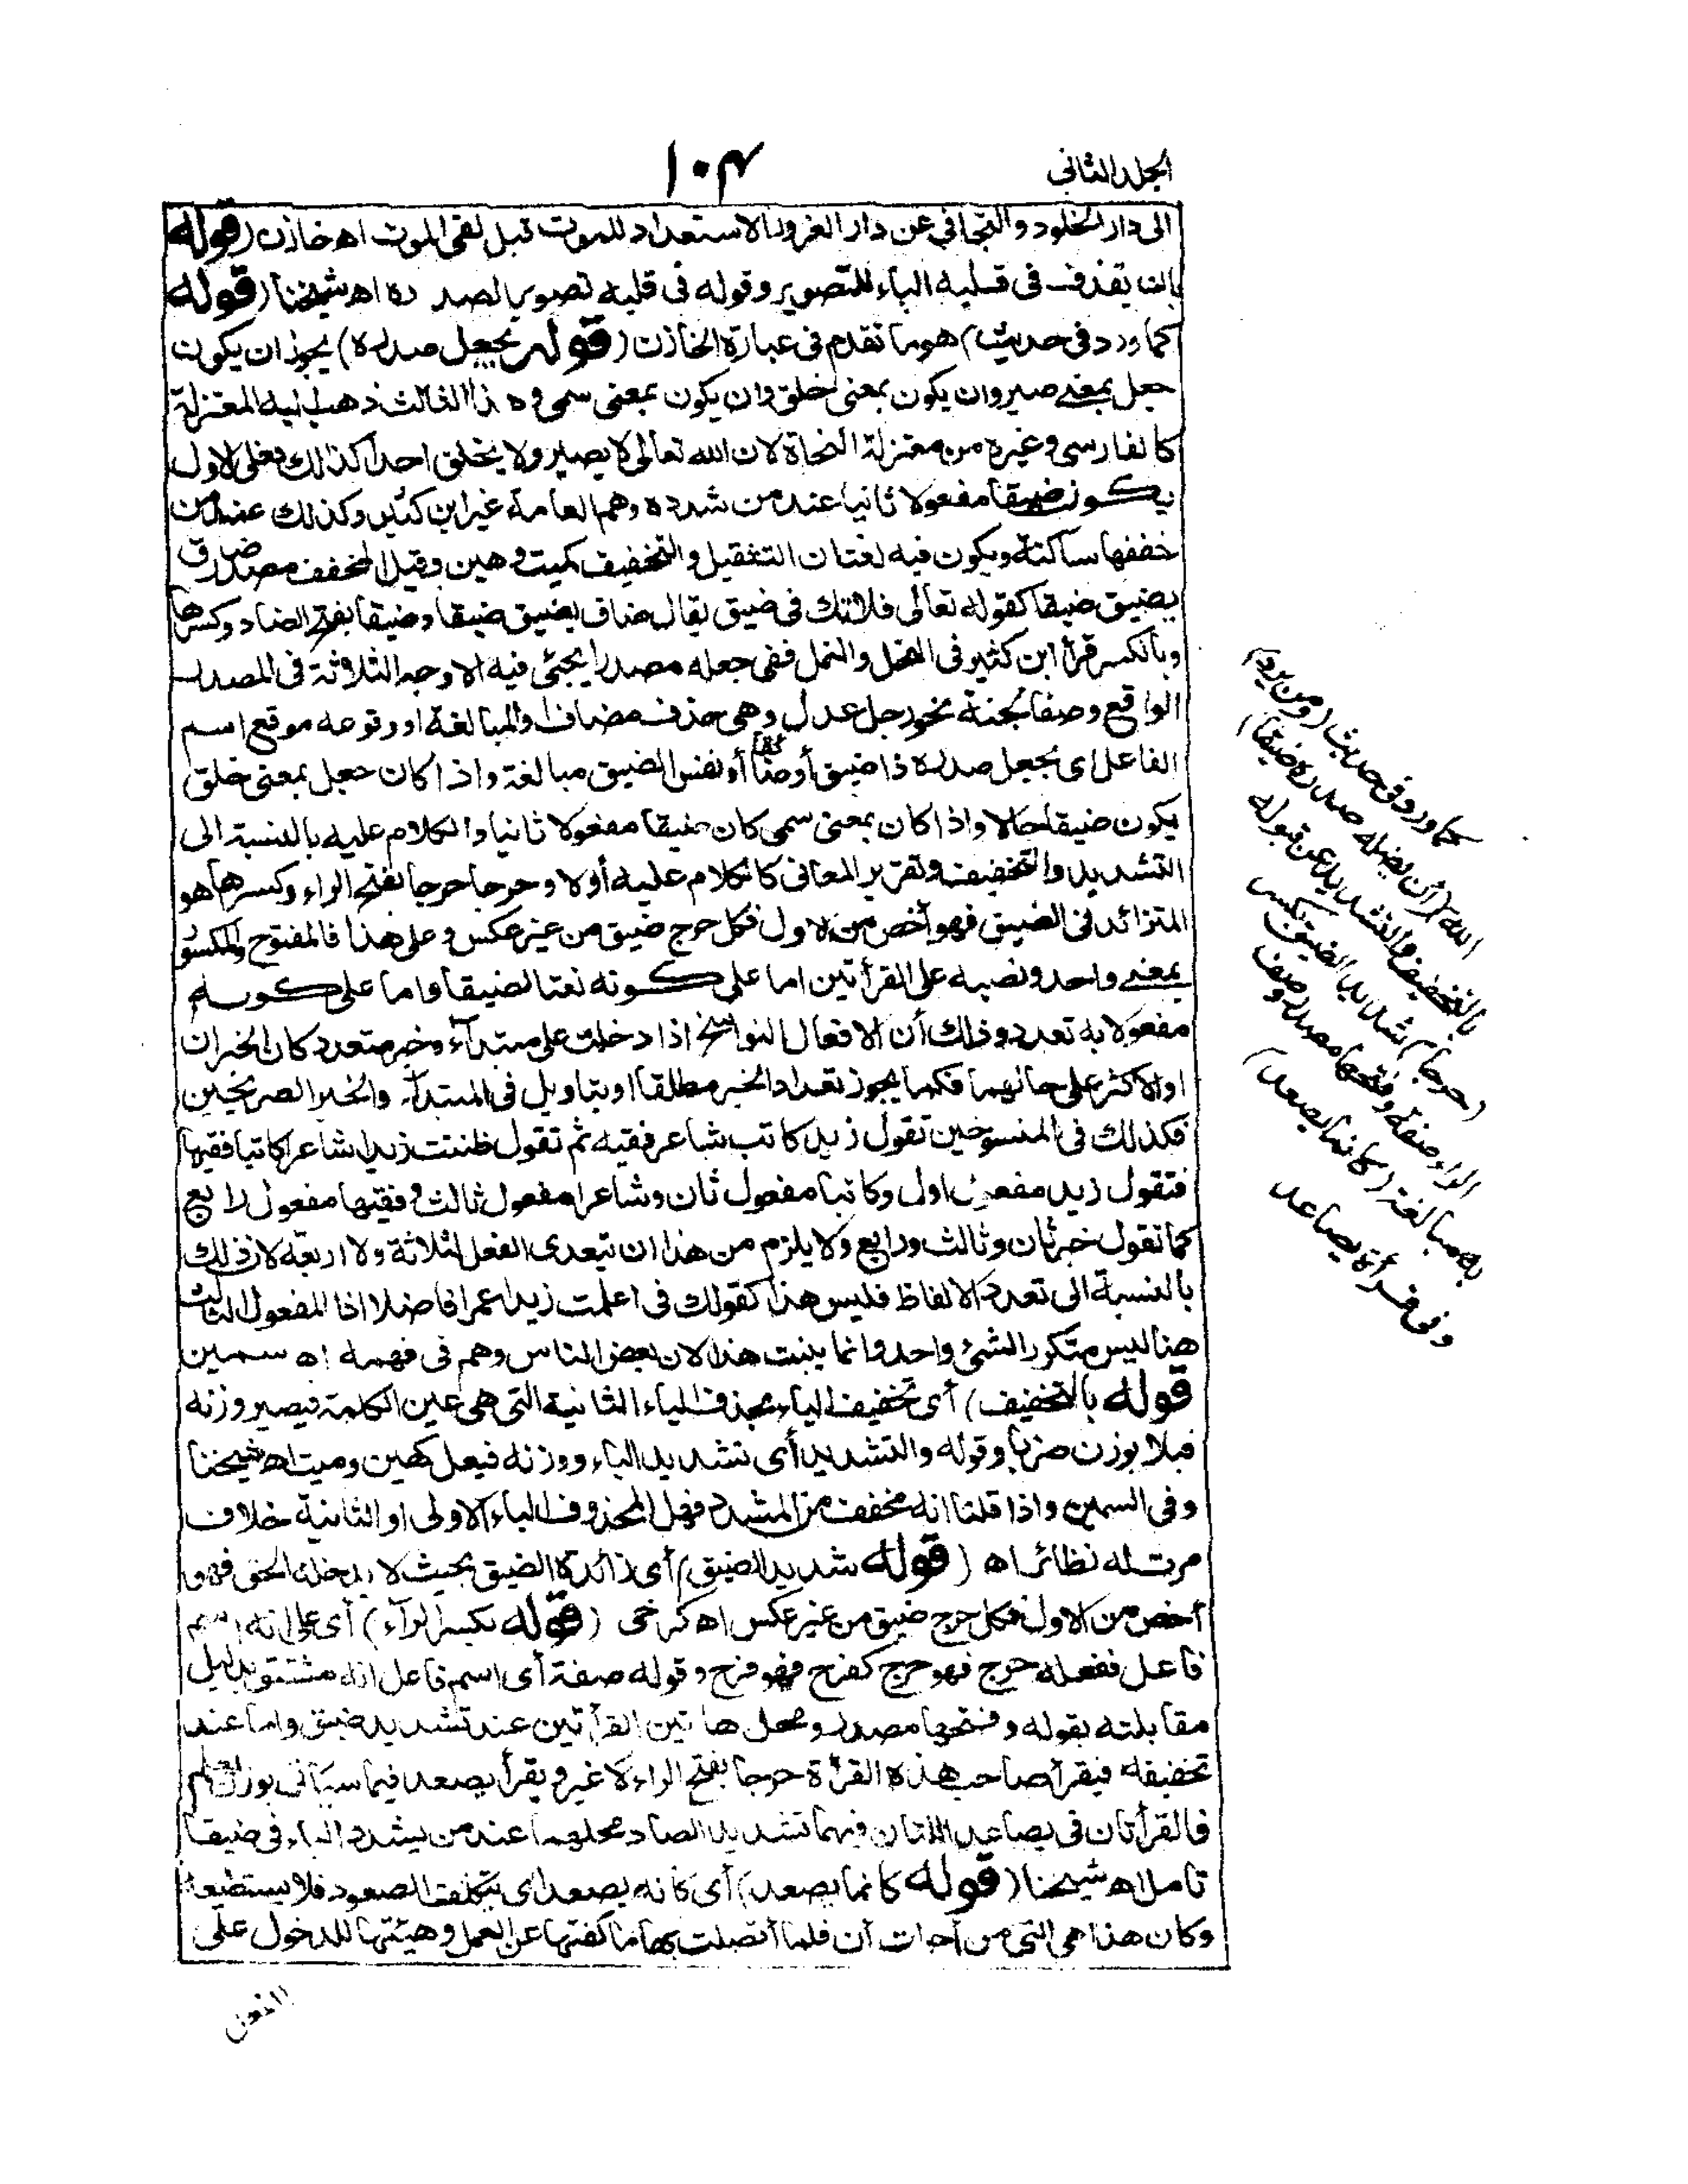 الجلد الثانى
١٠٤
الى دار الخلود والتجافى عن دار الغرور والاستعداد للموت قبل لقى الموت اه خازن (قوله
بان يقذف فى قلبه الباء للتصوير وقوله فى قلبه تصوير لصدره اه شيخنا (قوله
كما ورد فى حديث) هو ما تقدم فى عبارة الخازن (قوله يجعل صدره) يجوز ان يكون
جعل بمعنى صير وان يكون بمعنى خلق وان يكون بمعنى سمى وهذا الثالث ذهب اليه المعتزلة
كالفارسى وغيره من معتزلة النحاة لان الله تعالى لا يصير ولا يخلق احدا كذلك فعلى الاول
يكون ضيقا مفعولا ثانيا عند من شدده وهم العامة غير ابن كثير وكذلك عند من
خففها ساكنة ويكون فيه لغتان التثقيل والتخفيف كميت وهين وقيل المخفف مصدر ضاق
يضيق ضيقا كقوله تعالى فلا تك فى ضيق يقال ضاق يضيق ضيقا وضيقا بفتح الضاد وكسرها
وبالكسر قرأ ابن كثير فى النحل والنمل ففى جعله مصدرا يجئى فيه الاوجه الثلاثة فى المصدر
الواقع وصفا لجثة نحو رجل عدل وهى حذف مضاف والمبالغة او وقوعه موقع اسم
الفاعل اى يجعل صدره ذا ضيق أو ضائقا أو نفس الضيق مبالغة واذا كان جعل بمعنى خلق
يكون ضيقا حالا واذا كان بمعنى سمى كان ضيقا مفعولا ثانيا والكلام عليه بالنسبة الى
التشديد والتخفيف وتقرير المعانى كالكلام عليه أولا وحرجا حرجا بفتح الراء وكسرها هو
المتزائد فى الضيق فهو أخص من الاول فكل حرج ضيق من غير عكس وعلى هذا فالمفتوح والمكسور
بمعنى واحد ونصبه على القرأتين اما على كونه نعتا لضيقا واما على كونه
مفعولا به تعدد وذلك أن الافعال النواسخ اذا دخلت على مبتدآء وخبر متعدد كان الخبران
او الاكثر على حالهما فكما يجوز تعداد الخبر مطلقا او بتاويل فى المبتدآء والخبر الصريحين
فكذلك فى المنسوخين تقول زيد كاتب شاعر فقيه ثم تقول ظننت زيدا شاعرا كاتبا فقيها
فتقول زيد مفعول اول وكاتبا مفعول ثان وشاعرا مفعول ثالث وفقيها مفعول رابع
كما تقول خبر ثان وثالث ورابع ولا يلزم من هذا ان يتعدى الفعل لثلاثة ولا اربعة لان ذلك
بالنسبة الى تعدد الالفاظ فليس هذا كقولك فى اعلمت زيدا عمرا فاضلا اذا المفعول الثالث
هنا ليس متكرر الشئ واحد وانما بينت هذا لان بعض الناس وهم فى فهمه اه سمين
قوله بالتخفيف) أى تخفيف الياء بحذف الياء الثانية التى هى عين الكلمة فيصير وزنه
فيلا بوزن ضربا وقوله والتشديد أى تشديد الياء ووزنه فيعل كهين وميت اه شيخنا
وفى السمين واذا قلنا انه مخفف من المشدد فهل المحذوف الياء الاولى او الثانية خلاف
مرت له نظائر اه (قوله شديد الضيق) أى زائدة الضيق بحيث لا يدخله الحق فهو
أخص من الاول فكل حرج ضيق من غير عكس اه كرخى (قوله بكسر الرآء) أى على انه اسم
فاعل ففعله حرج فهو حرج كفرح فهو فرح وقوله صفة أى اسم فاعل انه مشتق بدليل
مقابلته بقوله وفتحها مصدر ومحل هاتين القرأتين عند تشديد ضيق واما عند
تخفيفه فيقرأ صاحب هذه القرأة حرجا بفتح الراء لا غير ويقرأ يصعد فيما سيأتى بوزن يعلم
فالقرأتان فى يصاعد اللتان فيهما تشديد الصاد محلهما عند من يشدد الياء فى ضيقا
تامل اه شيخنا (قوله كانما يصعد) أى كانه يصعد اى يتكلف الصعود فلا يستطيعه
وكان هذا هى التى من أخوات أن فلما أتصلت بها ما كفتها عن العمل وهيئتها للدخول على
كما ورد فى حديث (ومن يرد
الله) أن يضله صدره ضيقا)
بالتخفيف والتشديد عن قبوله
(حرجا) شديد الضيق بكسر
الراء صفة وفتحها مصدر وصف
به مبالغة (كانما يصعد)
وفى قرأة يصاعد